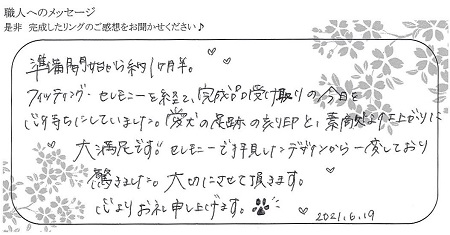 職人へのメッセージ
是非 完成したリングのご感想をお聞かせください♪
準備開始から約1ヶ月半。
フィッティング・セレモニーを経て、完成品受け取りの今日を
心待ちにしていました。愛犬の足跡の刻印と、素敵な仕上がりに
大満足です。セレモニーで拝見したデザインから一変しており
驚きました。大切にさせて頂きます。
心よりお礼申し上げます。
2021.6.19